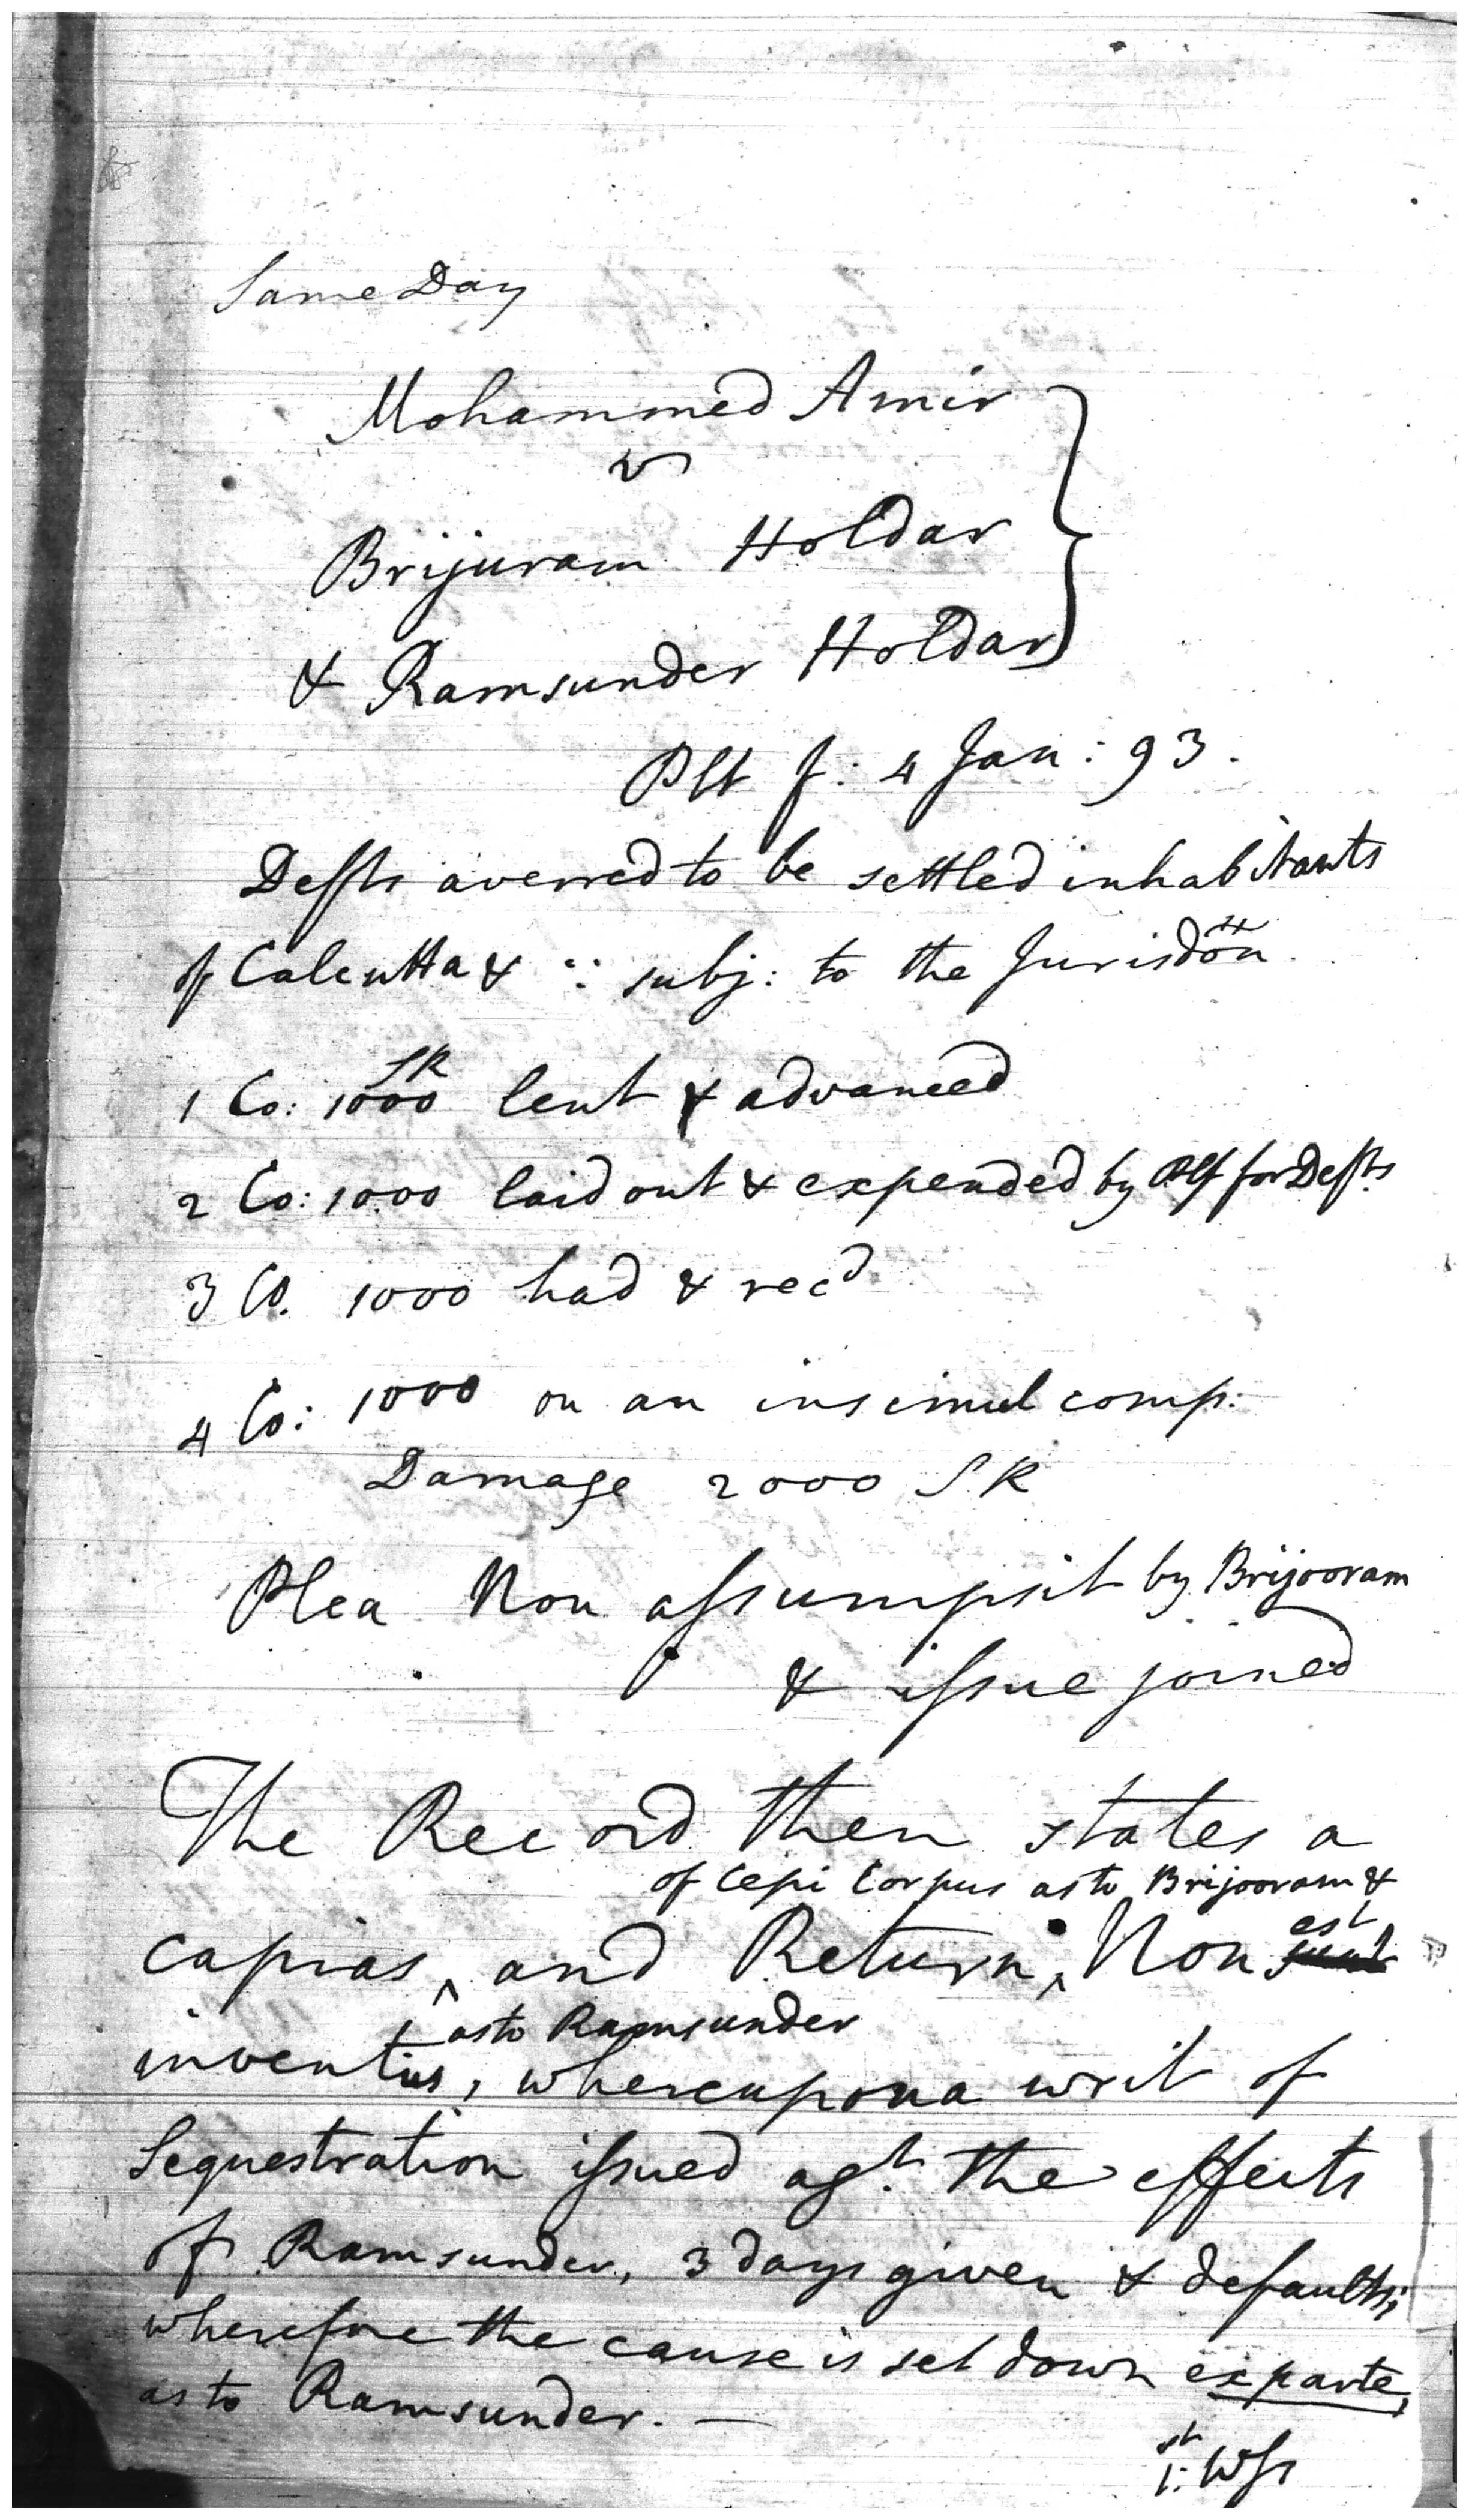 Same Day
Mohammed Amir
v
Brijuram Holdar
& Ramsunder Holdar
Plt f: 4 Jan: 93.
Defts averred to be settled inhabitants
of Calcutta & ∵ subj: to the Jurisdōn.
SR
1 Co: 1000 lent & advanced
2 Co: 1000 laid out & expended by Plf for Defts
3 Co. 1000 had & recd
4 Co: 1000 on an insimul comp:
Damage 2000 SR
Plea Non assumpsit by Brijooram
& issue joined
The Record then states a
of Cepi Corpus as to Brijooram &
capias, and Return, Non est
as to Ramsunder
inventus, whereupon a writ of
Sequestration issued agt. the effects
of Ramsunder, 3 days given & defaults;
wherefore the cause is set down exparte,
as to Ramsunder. —
1st Wss